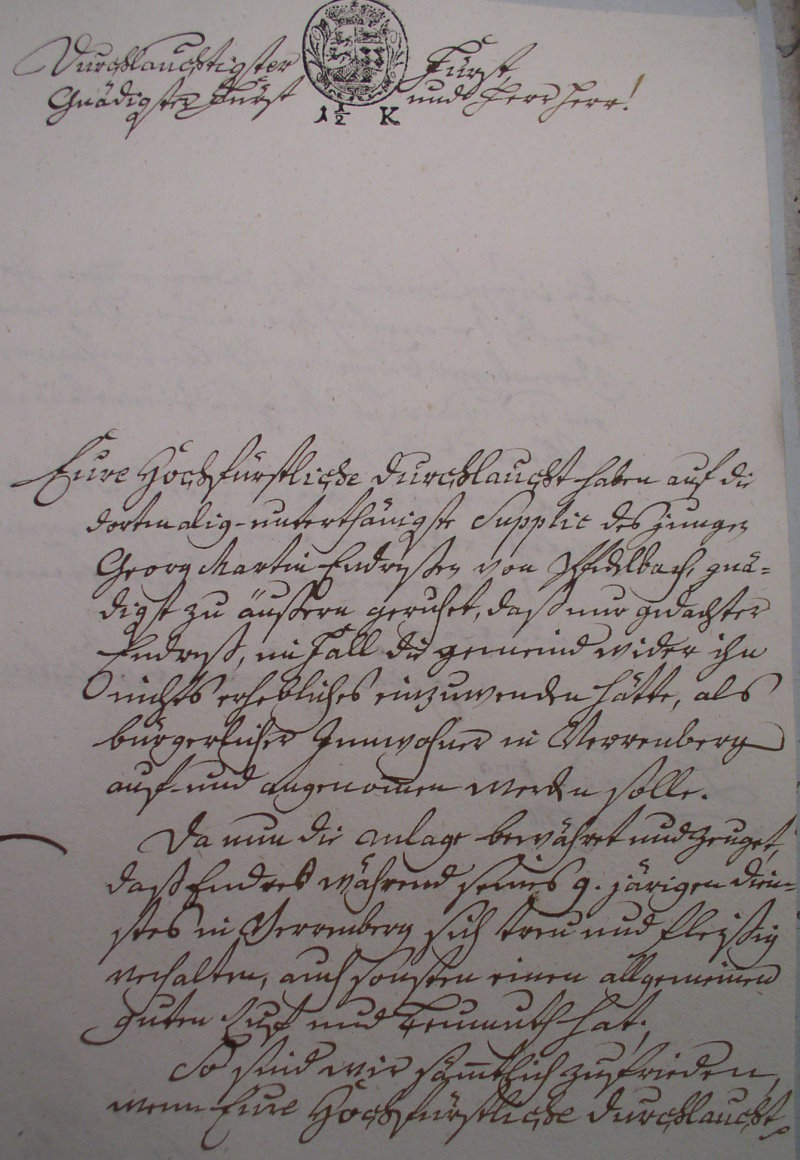 Durchlauchtigster Fürst,
Gnädigster Fürst und Herr Herr!
1 1/2 K
Eure Hochfürstliche Durchlaucht haben auf die
dortmalig-unterthänigste Supplic des jungen
Georg Martin Endreßen von Pfedelbach, gnä=
digst zu äußern geruhet, daß nur gedachter
Endreß, im Fall die gemeind wider ihn
nichts erhebliches einzuwenden hätte, als
bürgerlicher Innwohner in Verrenberg
auf- und angenommen werden solle.
Da nun die anlage bewähret und zeuget,
daß Endres während seines 9. järigen dien=
stes in Verrenberg sich treu und fleißig
verhalten, auch sonsten einen allgemeinen
guten Ruf und Leumuth hat;
So sind wir sämtlich zufrieden,
wenn Eure Hochfürstliche Durchlaucht